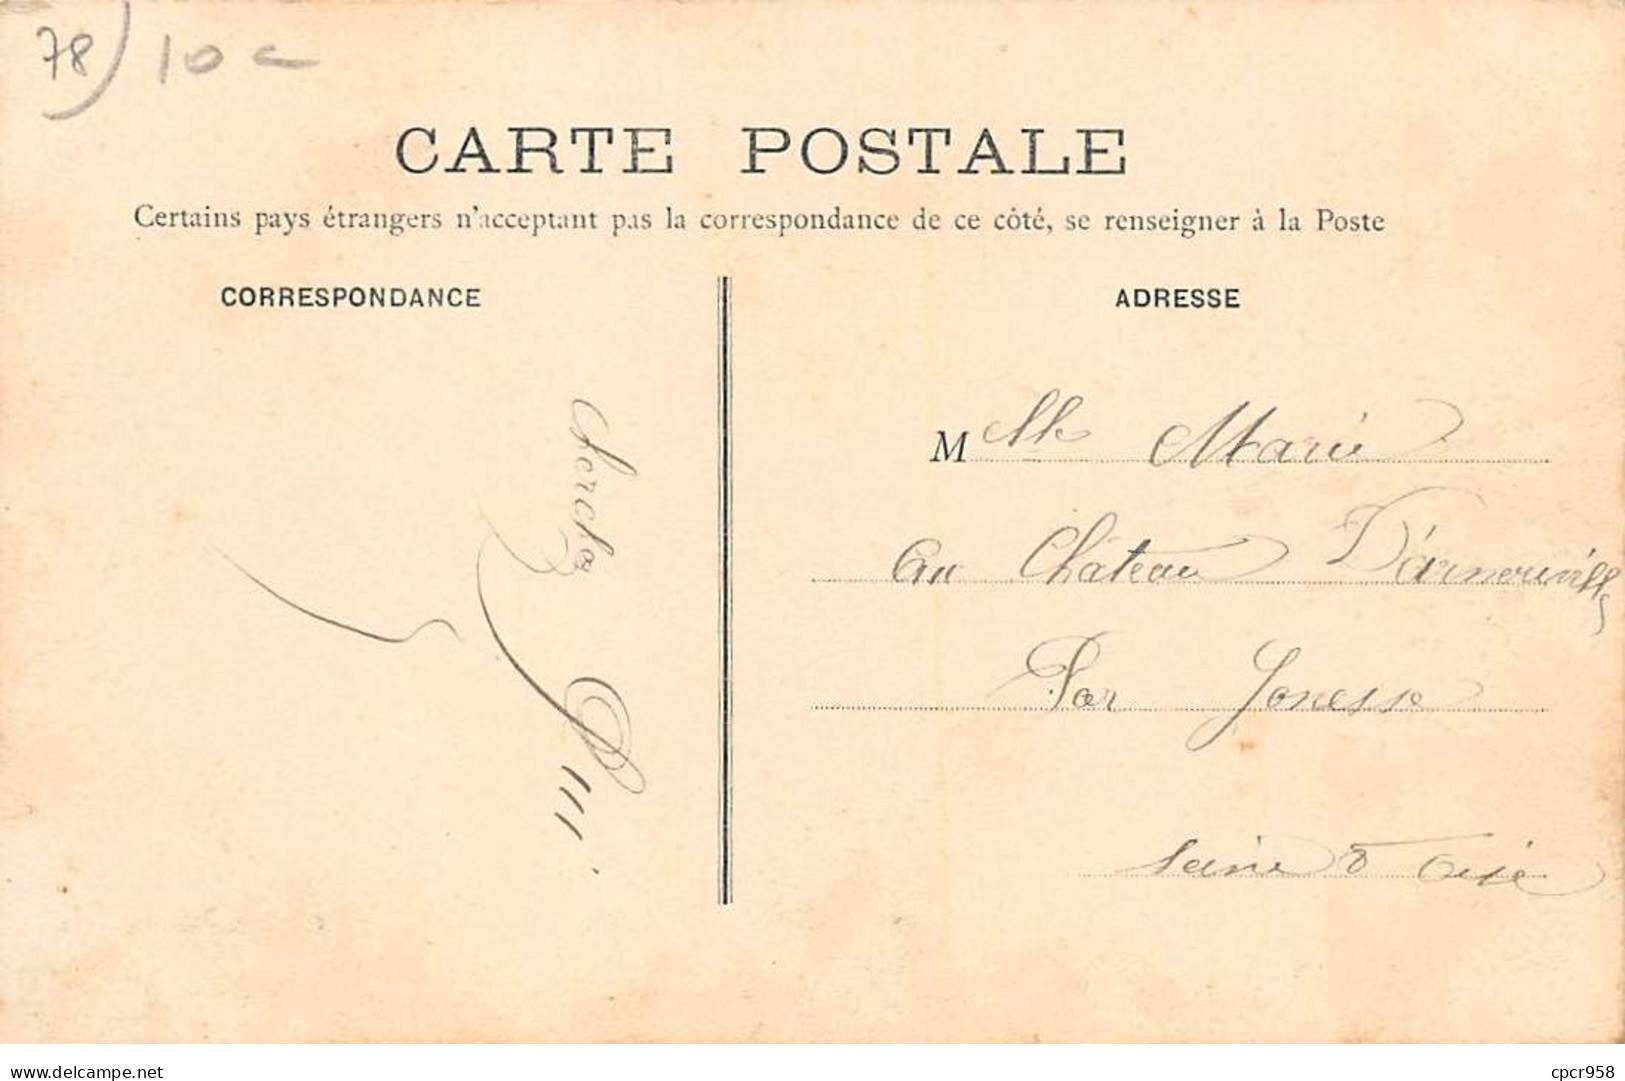 78) 10 c
CARTE POSTALE
Certains pays étrangers n'acceptant pas la correspondance de ce côté, se renseigner à la Poste
CORRESPONDANCE
ADRESSE
Cherchez
Qui
Mlle Marie
Au Château D'arnouville
Par Gonesse
Seine & Oise
delcampe.net
cpcr958